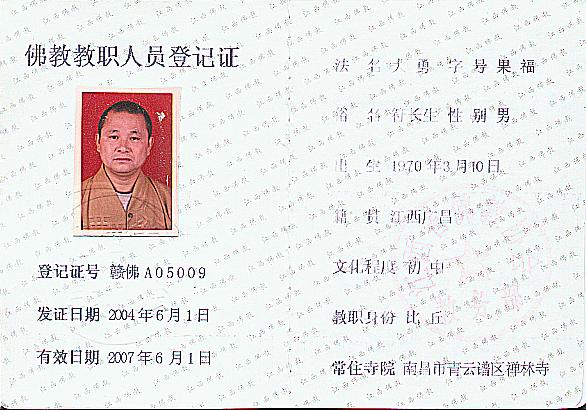 佛教教职人员登记证
登记证号 赣佛A05009
发证日期 2004年6月1日
有效日期 2007年6月1日
法名 大勇 字号 果福
俗名 长生 性别 男
出生 1970年3月10日
籍贯 江西广昌
文化程度 初中
教职身份 比丘
常住寺院 南昌市青云谱区禅林寺